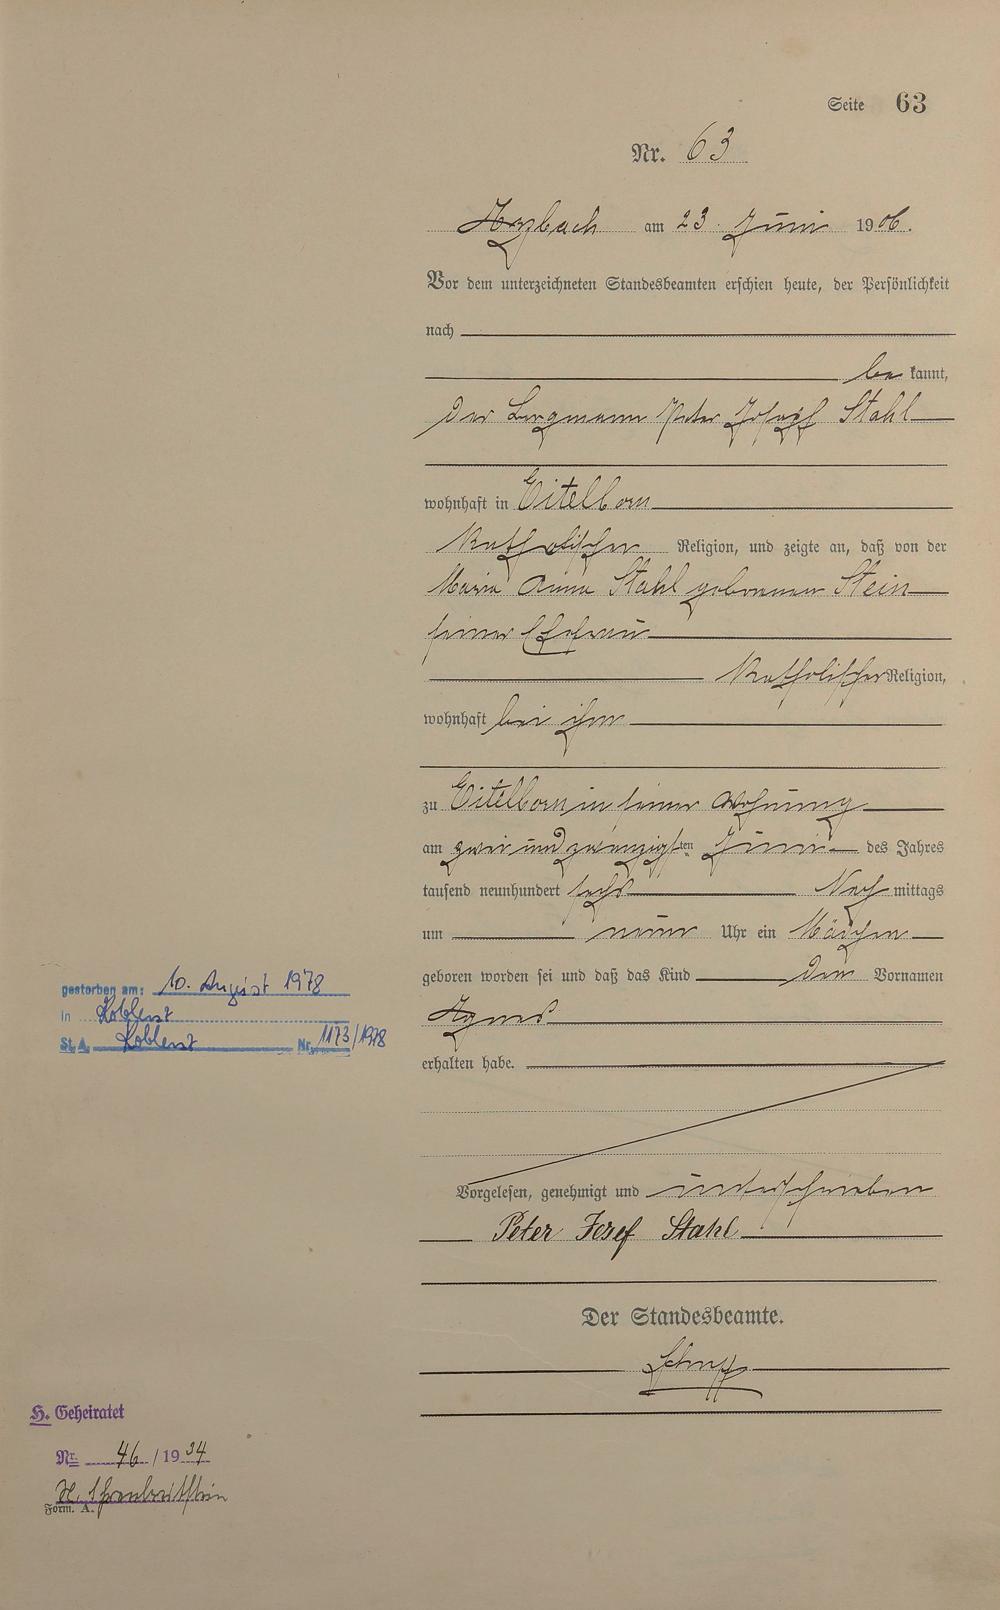 Seite 63
Nr. 63
Arzbach am 23. Juni 1906.
Vor dem unterzeichneten Standesbeamten erschien heute, der Persönlichkeit
nach
be kannt,
der Bergmann Peter Josef Stahl
wohnhaft in Eitelborn
katholischer Religion, und zeigte an, daß von der
Maria Anna Stahl geborenen Stein
seiner Ehefrau
katholischer Religion,
wohnhaft bei ihm
zu Eitelborn in seiner Wohnung
am zwei und zwanzigsten Juni des Jahres
tausend neunhundert sechs Nach mittags
um neun Uhr ein Mädchen
geboren worden sei und daß das Kind den Vornamen
Agnes
erhalten habe.
Vorgelesen, genehmigt und unterschrieben
Peter Josef Stahl
Der Standesbeamte.
gestorben am: 10. August 1978
in Koblenz
St. A. Koblenz Nr. 1173/1978
H. Geheiratet
Nr. 46 / 1934
St. Ehrenbreitstein
Form. A.